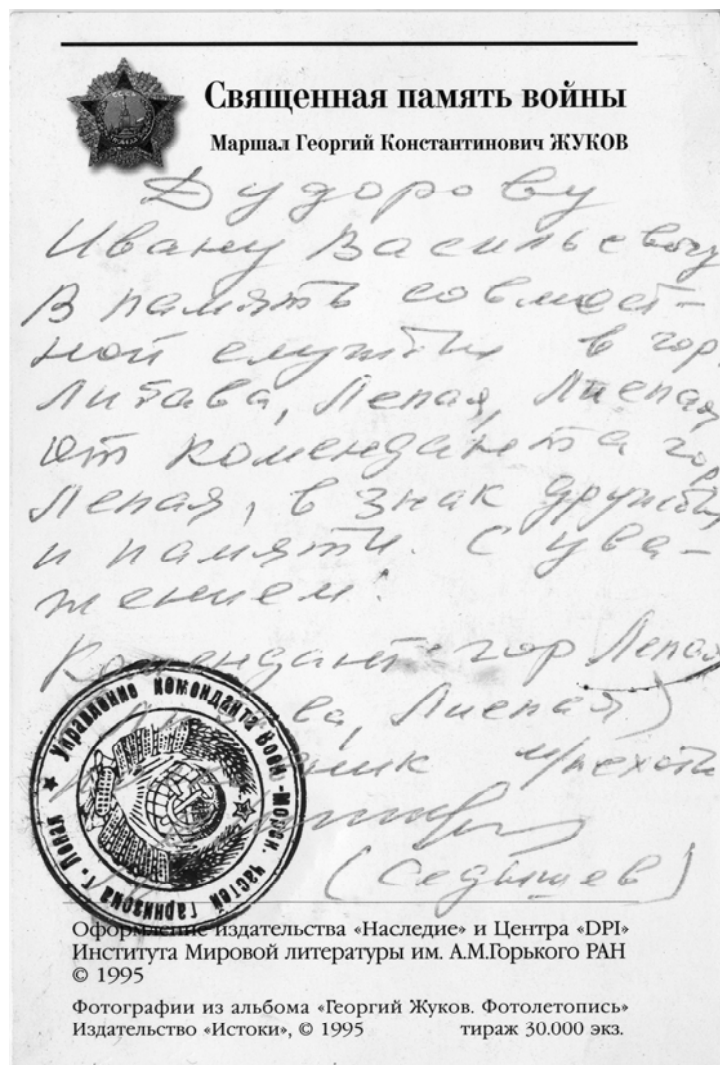 Священная память войны
Маршал Георгий Константинович ЖУКОВ
Дудорову
Ивану Васильевичу
В память совмест-
ной службы в гор.
Либава, Лепая, Лиепая
от коменданта гор
Лепая, в знак дружбы
и памяти. С ува-
жением!
Комендант гор Лепая
ва, Лиепая)
(Седышев)
Управление коменданта Воен.-Морск. частей гарнизона г. Лепая
Оформление издательства «Наследие» и Центра «DPI»
Института Мировой литературы им. А.М.Горького РАН
© 1995
Фотографии из альбома «Георгий Жуков. Фотолетопись»
Издательство «Истоки», © 1995 тираж 30.000 экз.